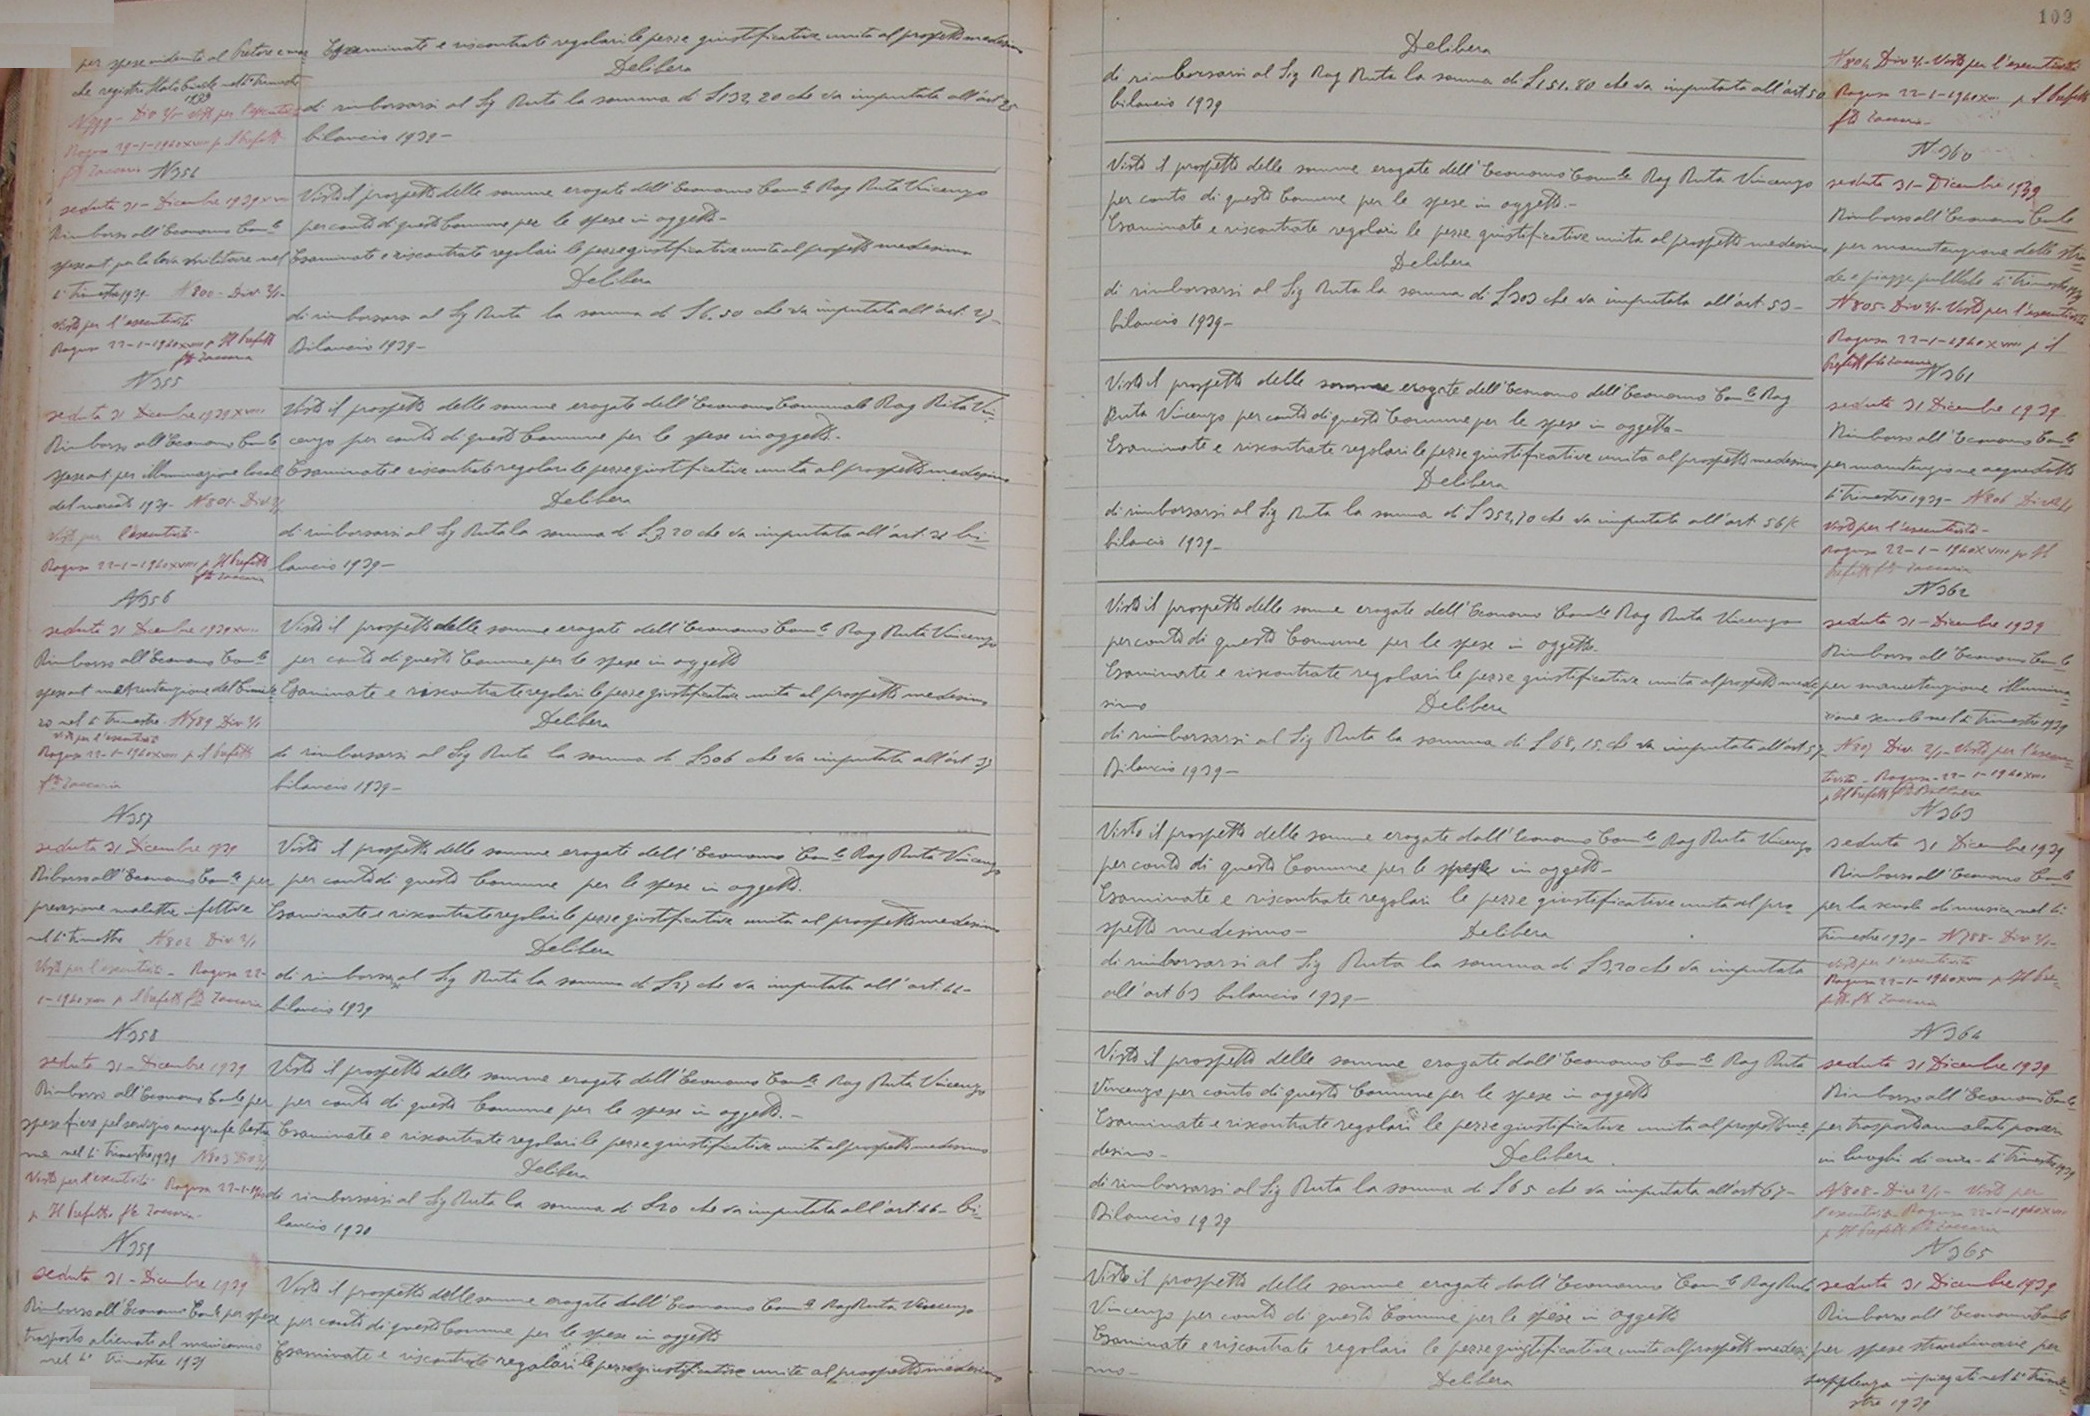 109
per spese vidimate al Pretore e mar
che registri Stato Civile nel 4° Trimestre
1939
N 799 - Div 2/1 - Visto per l'esecutività
Ragusa 29-1-1940 XVIII p Il Prefetto
fto Zaccaria
Esaminate e riscontrate regolari le pezze giustificative unite al prospetto medesimo
Delibera
di rimborsarsi al Sig Ruta la somma di L 132,20 che va imputata all'art 25
bilancio 1939 -
N 354
seduta 31 - Dicembre 1939 XVIII
Rimborso all'Economo Comle
spese ant per la leva militare nel
4° Trimestre 1939 - N 800 - Div 2/1 -
Visto per l'esecutività
Ragusa 22-1-1940 XVIII p Il Prefetto
fto Zaccaria
Visto il prospetto delle somme erogate dall'Economo Comle Rag Ruta Vincenzo
per conto di questo Comune per le spese in oggetto -
Esaminate e riscontrate regolari le pezze giustificative unite al prospetto medesimo
Delibera
di rimborsarsi al Sig Ruta la somma di L 6,50 che va imputata all'art. 27 -
Bilancio 1939 -
N 355
seduta 31 Dicembre 1939 XVIII
Rimborso all'Economo Comle
spese ant per illuminazione locali
del mercato 1939 - N 801 - Div 2/1
Visto per l'esecutività -
Ragusa 22-1-1940 XVIII p Il Prefetto
fto Zaccaria
Visto il prospetto delle somme erogate dell'Economo Comunale Rag Ruta Vin-
cenzo per conto di questo Comune per le spese in oggetto -
Esaminate e riscontrate regolari le pezze giustificative unite al prospetto medesimo
Delibera
di rimborsarsi al Sig Ruta la somma di L 3,20 che va imputata all'art. 31 bi-
lancio 1939 -
N 356
seduta 31 Dicembre 1939 XVIII
Rimborso all'Economo Comle
spese ant manutenzione del Cimite
ro nel 4° Trimestre - N 789 Div 2/1
Visto per l'esecutività
Ragusa 22-1-1940 XVIII p Il Prefetto
fto Zaccaria
Visto il prospetto delle somme erogate dell'Economo Comle Rag Ruta Vincenzo
per conto di questo Comune per le spese in oggetto
Esaminate e riscontrate regolari le pezze giustificative unite al prospetto medesimo
Delibera
di rimborsarsi al Sig Ruta la somma di L 306 che va imputata all'art 37
bilancio 1939 -
N 357
seduta 31 Dicembre 1939
Riborso all'Economo Comle per
prevenzione malattie infettive
nel 4° trimestre N 802 Div 2/1
Visto per l'esecutività - Ragusa 22-
1-1940 XVIII p Il Prefetto fto Zaccaria
Visto il prospetto delle somme erogate dell'Economo Comle Rag Ruta Vincenzo
per conto di questo Comune per le spese in oggetto.
Esaminate e riscontrate regolari le pezze giustificative unite al prospetto medesimo
Delibera
di rimborsarsi al Sig Ruta la somma di L 27 che va imputata all'art. 44 -
bilancio 1939
N 358
seduta 31 - Dicembre 1939
Rimborso all'Economo Comle per
spese fiere pel servizio anagrafe bestia
me nel 4° trimestre 1939 N 803 Div 2/1
Visto per l'esecutività Ragusa 22-1-1940
p Il Prefetto fto Zaccaria -
Visto il prospetto delle somme erogate dell'Economo Comle Rag Ruta Vincenzo
per conto di questo Comune per le spese in oggetto. -
Esaminate e riscontrate regolari le pezze giustificative unite al prospetto medesimo
Delibera
di rimborsarsi al Sig Ruta la somma di L 20 che va imputata all'art. 46 - bi-
lancio 1930
N 359
seduta 31 - Dicembre 1939
Rimborso all'Economo Comle per spese
trasporto alienato al manicomio
nel 4° Trimestre 1939
Visto il prospetto delle somme erogate dall'Economo Comle Rag Ruta Vincenzo
per conto di questo Comune per le spese in oggetto
Esaminate e riscontrate regolari le pezze giustificative unite al prospetto medesimo
Delibera
di rimborsarsi al Sig Rag Ruta la somma di L 151,80 che va imputata all'art 50
bilancio 1939
N 804 Div 2/1 - Visto per l'esecutività
Ragusa 22-1-1940 XVIII p Il Prefetto
fto Zaccaria -
N 360
Visto il prospetto delle somme erogate dell'Economo Comle Rag Ruta Vincenzo
per conto di questo Comune per le spese in oggetto. -
Esaminate e riscontrate regolari le pezze giustificative unite al prospetto medesimo
Delibera
di rimborsarsi al Sig Ruta la somma di L 303 che va imputata all'art. 53 -
bilancio 1939 -
seduta 31 - Dicembre 1939
Rimborso all'Economo Comle
per manutenzione delle stra
de e piazze pubbliche 4° trimestre 1939
N 805 - Div 2/1 - Visto per l'esecutività
Ragusa 22-1-1940 XVIII p Il
Prefetto fto Zaccaria
N 361
Visto il prospetto delle somme erogate dell'Economo dell'Economo Comle Rag
Ruta Vincenzo per conto di questo Comune per le spese in oggetto -
Esaminate e riscontrate regolari le pezze giustificative unite al prospetto medesimo
Delibera
di rimborsarsi al Sig Ruta la somma di L 352,70 che va imputata all'art 56/c
bilancio 1939 -
seduta 31 Dicembre 1939
Rimborso all'Economo Comle
per manutenzione acquedotto
4° Trimestre 1939 - N 806 Div 2/1
Visto per l'esecutività -
Ragusa 22-1-1940 XVIII p Il
Prefetto fto Zaccaria
N 362
Visto il prospetto delle somme erogate dell'Economo Comle Rag Ruta Vincenzo
per conto di questo Comune per le spese in oggetto.
Esaminate e riscontrate regolari le pezze giustificative unite al prospetto mede
simo Delibera
di rimborsarsi al Sig Ruta la somma di L 68,15 che va imputata all'art 57
Bilancio 1939 -
seduta 31 - Dicembre 1939
Rimborso all'Economo Comle
per manutenzione illumina
zione scuole nel 4° Trimestre 1939
N 807 Div 2/1 - Visto per l'esecu-
tività - Ragusa - 22-1-1940 XVIII
p Il Prefetto fto
N 363
Visto il prospetto delle somme erogate dall'Economo Comle Rag Ruta Vincenzo
per conto di questo Comune per le spese in oggetto -
Esaminate e riscontrate regolari le pezze giustificative unite al pro-
spetto medesimo - Delibera
di rimborsarsi al Sig Ruta la somma di L 3,20 che va imputata
all'art 63 bilancio 1939 -
seduta 31 Dicembre 1939
Rimborso all'Economo Comle
per la scuola di musica nel 4°
trimestre 1939 - N 788 - Div 2/1 -
Visto per l'esecutività
Ragusa 22-1-1940 XVIII p Il Pre-
fetto fto Zaccaria
N 364
Visto il prospetto delle somme erogate dall'Economo Comle Rag Ruta
Vincenzo per conto di questo Comune per le spese in oggetto
Esaminate e riscontrate regolari le pezze giustificative unite al prospetto me-
desimo - Delibera
di rimborsarsi al Sig Ruta la somma di L 65 che va imputata all'art 67 -
Bilancio 1939
seduta 31 Dicembre 1939
Rimborso all'Economo Comle
per trasporto ammalati poveri
in luoghi di cura - 4° Trimestre 1939
N 808 - Div 2/1 - Visto per
l'esecutività Ragusa 22-1-1940 XVIII
p Il Prefetto fto Zaccaria
N 365
Visto il prospetto delle somme erogate dall'Economo Comle Rag Ruta
Vincenzo per conto di questo Comune per le spese in oggetto
Esaminate e riscontrate regolari le pezze giustificative unite al prospetto medesi
mo - Delibera
seduta 31 Dicembre 1939
Rimborso all'Economo Comle
per spese straordinarie per
supplenza impiegati nel 4° Trime-
stre 1939